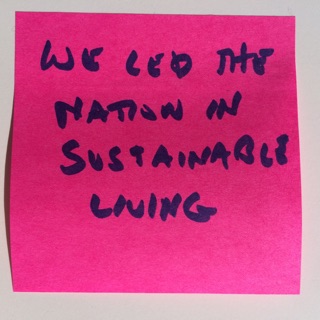 WE LED THE
NATION IN
SUSTAINABLE
LIVING